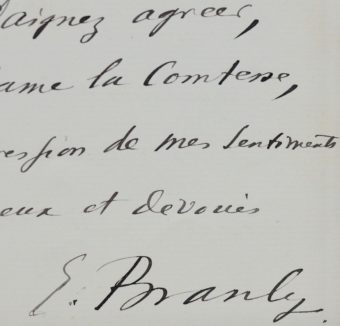 Daignez agréer,
ame la Comtesse,
ression de mes sentiments
eux et dévoués
E. Branly.